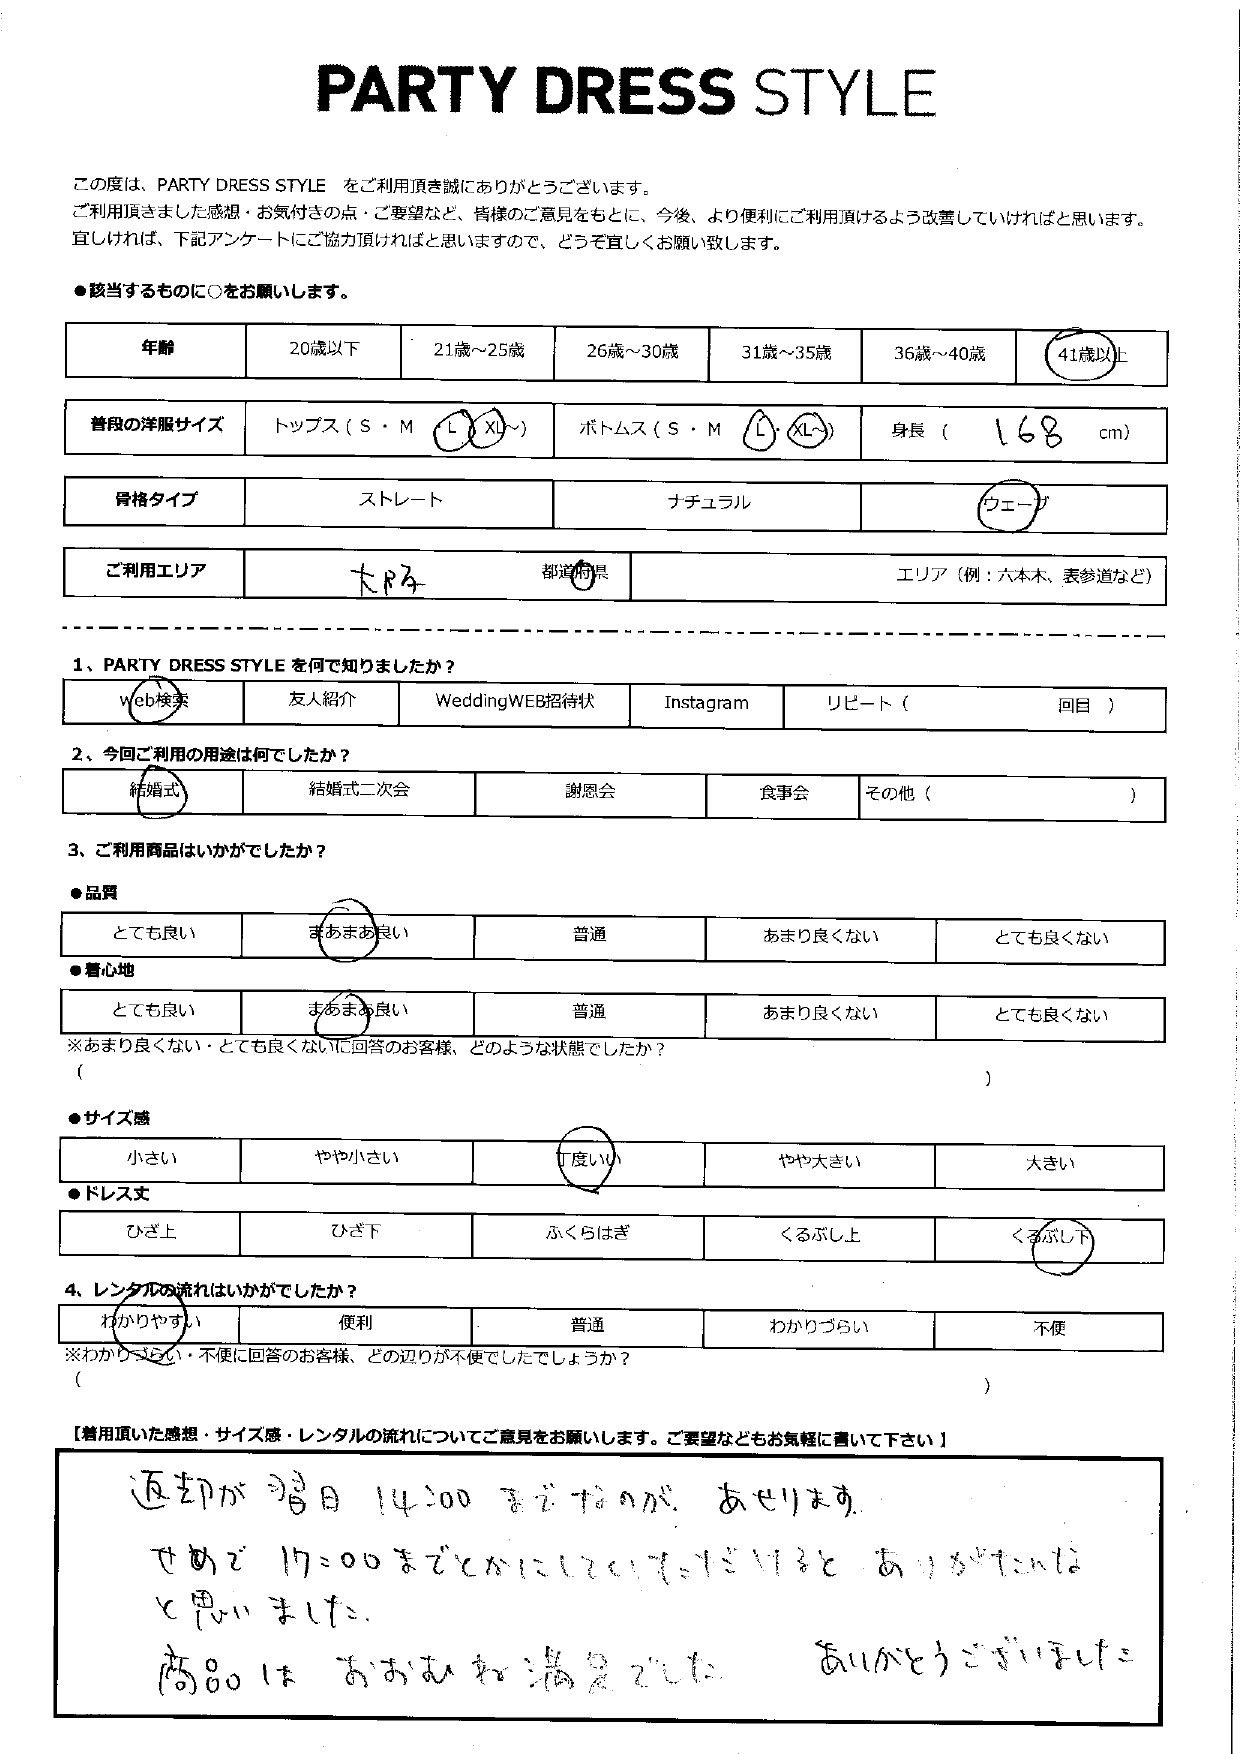 PARTY DRESS STYLE
この度は、PARTY DRESS STYLE をご利用頂き誠にありがとうございます。
ご利用頂きました感想・お気付きの点・ご要望など、皆様のご意見をもとに、今後、より便利にご利用頂けるよう改善していければと思います。
宜しければ、下記アンケートにご協力頂ければと思いますので、どうぞ宜しくお願い致します。
●該当するものに○をお願いします。
年齢 20歳以下 21歳～25歳 26歳～30歳 31歳～35歳 36歳～40歳 41歳以上
普段の洋服サイズ トップス ( S ・ M L XL～) ボトムス ( S ・ M L・XL～) 身長 ( 168 cm)
骨格タイプ ストレート ナチュラル ウェーブ
ご利用エリア 大阪 都道府県 エリア（例：六本木、表参道など）
1、PARTY DRESS STYLE を何で知りましたか？
Web検索 友人紹介 WeddingWEB招待状 Instagram リピート（ 回目 ）
2、今回ご利用の用途は何でしたか？
結婚式 結婚式二次会 謝恩会 食事会 その他（ ）
3、ご利用商品はいかがでしたか？
●品質
とても良い まあまあ良い 普通 あまり良くない とても良くない
●着心地
とても良い まあまあ良い 普通 あまり良くない とても良くない
※あまり良くない・とても良くないに回答のお客様、どのような状態でしたか？
（ ）
●サイズ感
小さい やや小さい 丁度いい やや大きい 大きい
●ドレス丈
ひざ上 ひざ下 ふくらはぎ くるぶし上 くるぶし下
4、レンタルの流れはいかがでしたか？
わかりやすい 便利 普通 わかりづらい 不便
※わかりづらい・不便に回答のお客様、どの辺りが不便でしたでしょうか？
（ ）
【着用頂いた感想・サイズ感・レンタルの流れについてご意見をお願いします。ご要望などもお気軽に書いて下さい 】
返却が 翌日 14:00 までなのが、あせります。
せめて 17:00までとかにしていただけると ありがたいな
と思いました。
商品は おおむね満足でした ありがとうございました